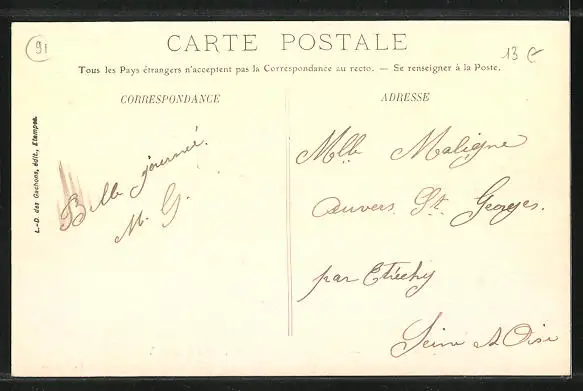 91
CARTE POSTALE
13 €
Tous les Pays étrangers n'acceptent pas la Correspondance au recto. — Se renseigner à la Poste.
CORRESPONDANCE
ADRESSE
L.-D. des Gachons, édit., Etampes.
Belle journée.
M. G.
Mlle Maligne
Auvers St. Georges.
par Etréchy
Seine & Oise